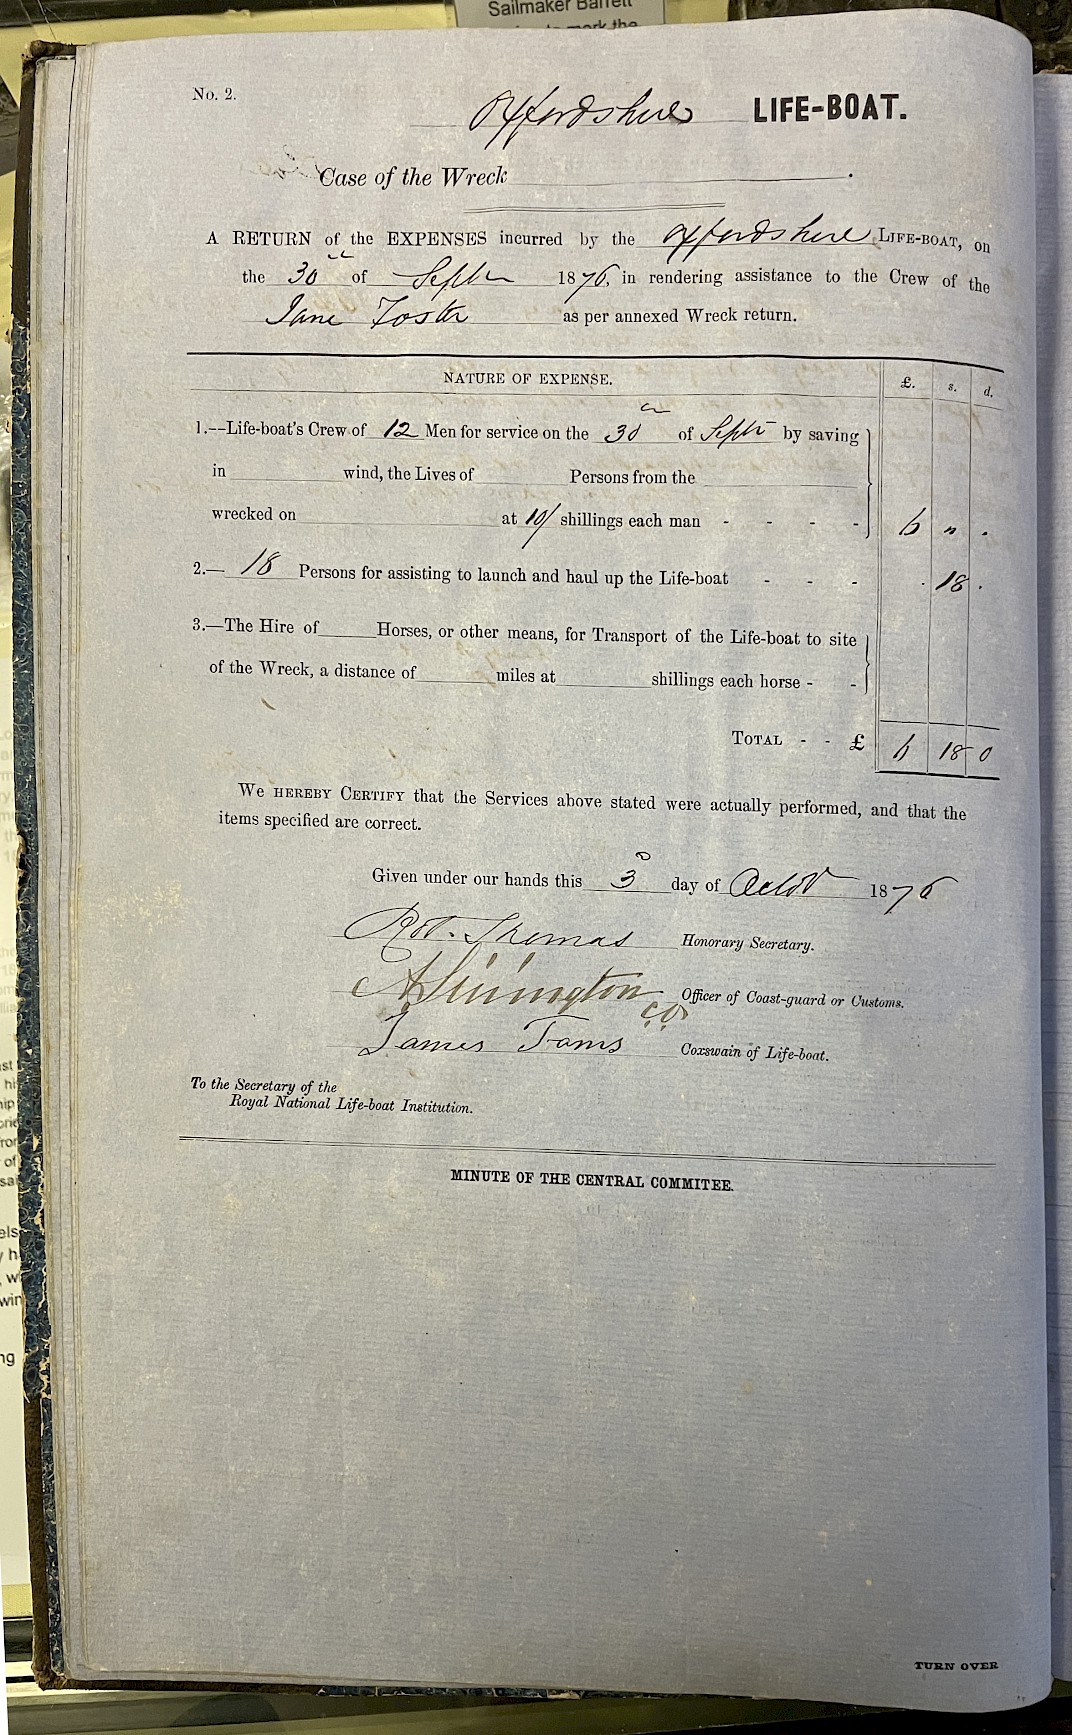 Sailmaker Barrett
No. 2.
Oxfordshire LIFE-BOAT.
Case of the Wreck .
A RETURN of the EXPENSES incurred by the Oxfordshire LIFE-BOAT, on
the 30th of Septr 1876, in rendering assistance to the Crew of the
Jane Foster as per annexed Wreck return.
NATURE OF EXPENSE. £. s. d.
1.--Life-boat's Crew of 12 Men for service on the 30th of Septr by saving
in wind, the Lives of Persons from the
wrecked on at 10/ shillings each man - - - - 6 " .
2.— 18 Persons for assisting to launch and haul up the Life-boat - - - . 18 .
3.—The Hire of Horses, or other means, for Transport of the Life-boat to site
of the Wreck, a distance of miles at shillings each horse - -
TOTAL - - £ 6 18 0
We HEREBY CERTIFY that the Services above stated were actually performed, and that the
items specified are correct.
Given under our hands this 3d day of Octor 1876
Robt. Thomas Honorary Secretary.
Officer of Coast-guard or Customs.
C.O.
James Fams Coxswain of Life-boat.
To the Secretary of the
Royal National Life-boat Institution.
MINUTE OF THE CENTRAL COMMITEE.
TURN OVER